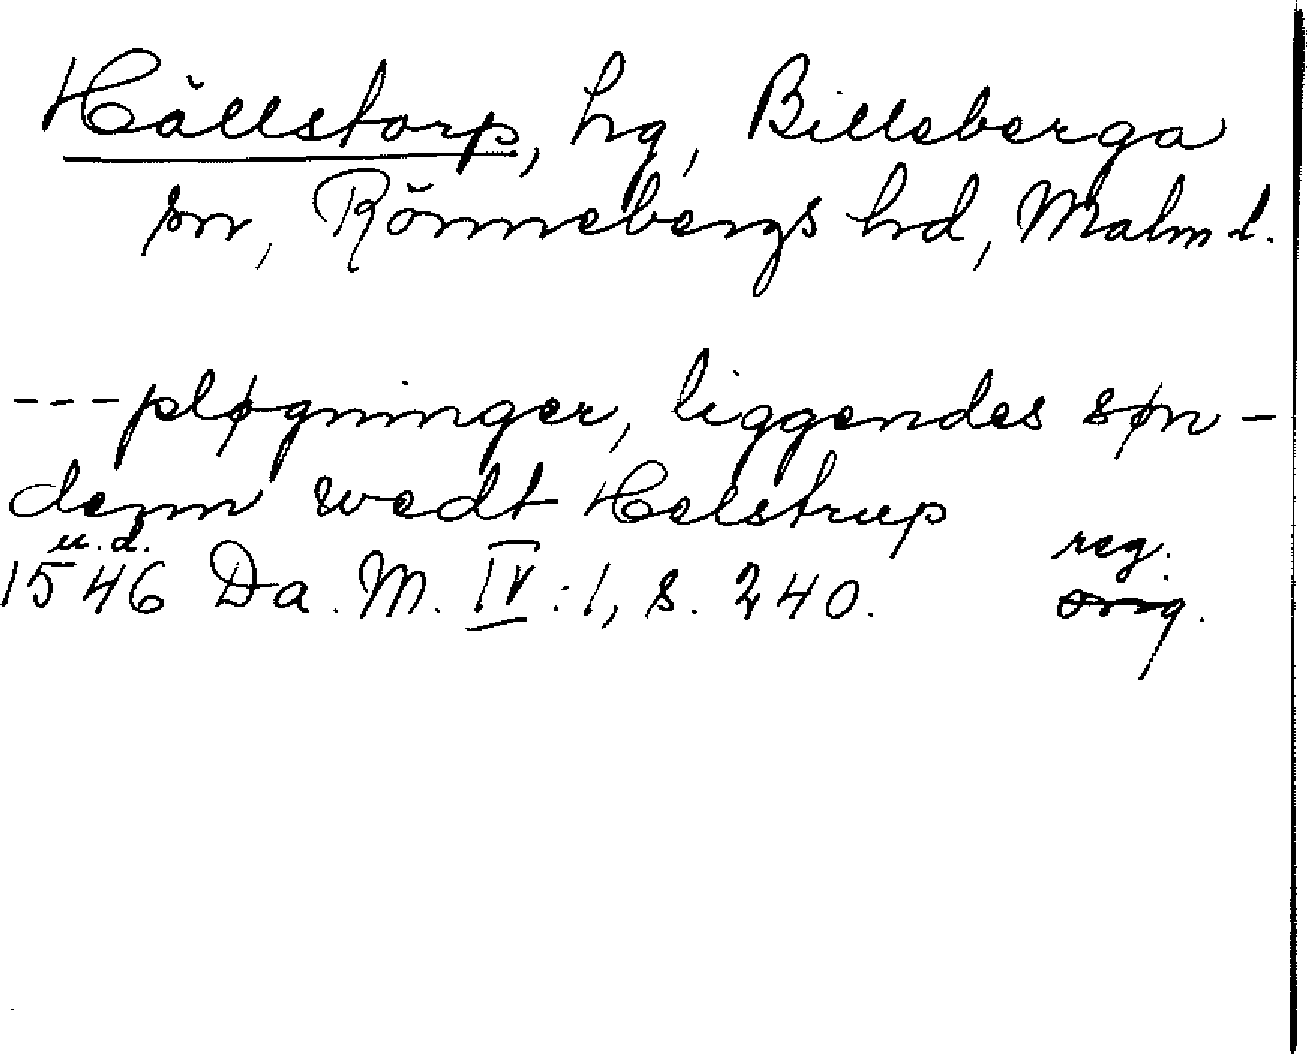 Hällstorp, hg, Billeberga
sn, Rönnebergs hd, Malm l.
---pløgninger, liggendes søn-
denn wedt Helstrup
u. d. reg.
1546 Da. M. IV:1, s. 240. orig.